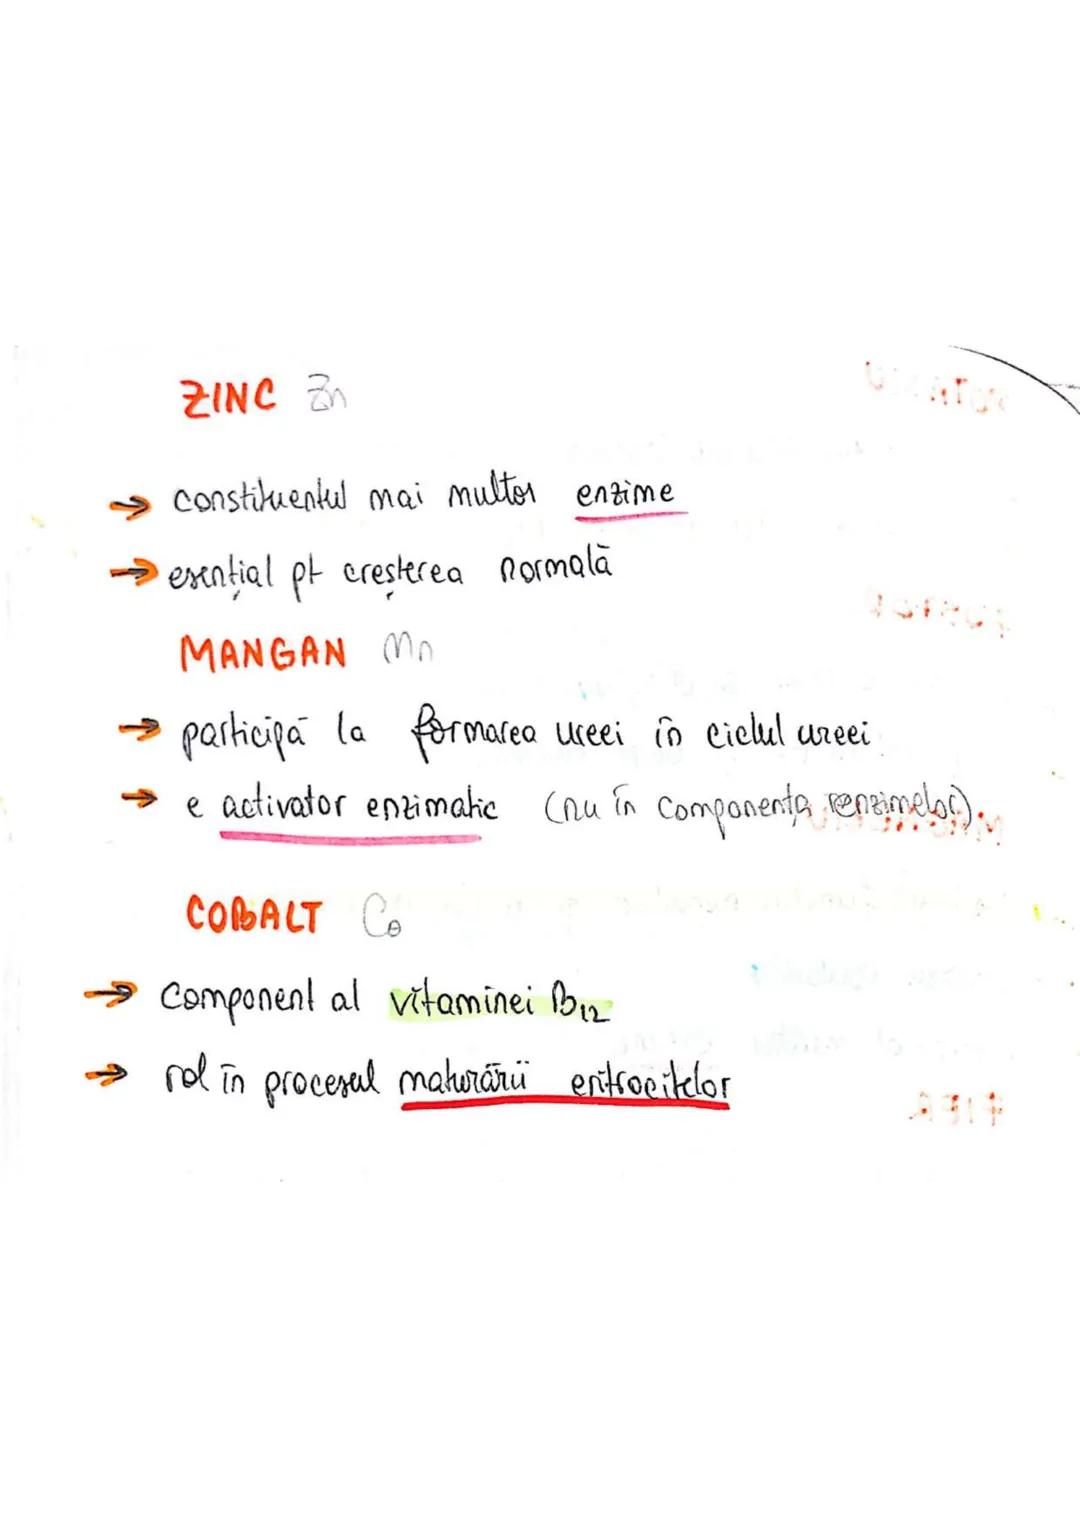 ZINC Zn
→ constituentul mai multor enzime
→ esențial pt creșterea normală
MANGAN Mn
→ participă la formarea ureei în ciclul ureei
→ e activator enzimatic (nu în componența enzimelor)
COBALT Co
→ component al vitaminei B12
→ rol în procesul maturării eritrocitelor